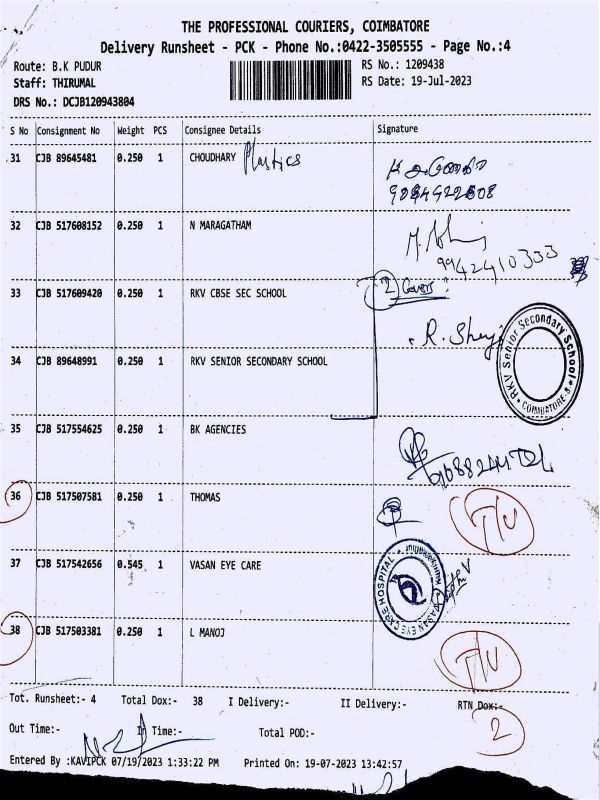 THE PROFESSIONAL COURIERS, COIMBATORE
Delivery Runsheet - PCK - Phone No.:0422-3505555 - Page No.:4
Route: B.K PUDUR RS No.: 1209438
Staff: THIRUMAL RS Date: 19-Jul-2023
DRS No.: DCJB120943804
S No Consignment No Weight PCS Consignee Details Signature
31 CJB 89645481 0.250 1 CHOUDHARY Plastics
32 CJB 517608152 0.250 1 N MARAGATHAM
9942410333
33 CJB 517609420 0.250 1 RKV CBSE SEC SCHOOL 2 Cover
34 CJB 89648991 0.250 1 RKV SENIOR SECONDARY SCHOOL
RKV Senior Secondary School
COIMBATORE
35 CJB 517554625 0.250 1 BK AGENCIES
36 CJB 517507581 0.250 1 THOMAS
37 CJB 517542656 0.545 1 VASAN EYE CARE
VASAN EYE CARE HOSPITAL
38 CJB 517503381 0.250 1 L MANOJ
Tot. Runsheet:- 4 Total Dox:- 38 I Delivery:- II Delivery:- RTN Dox:-
2
Out Time:- In Time:- Total POD:-
Entered By :KAVIPCK 07/19/2023 1:33:22 PM Printed On: 19-07-2023 13:42:57